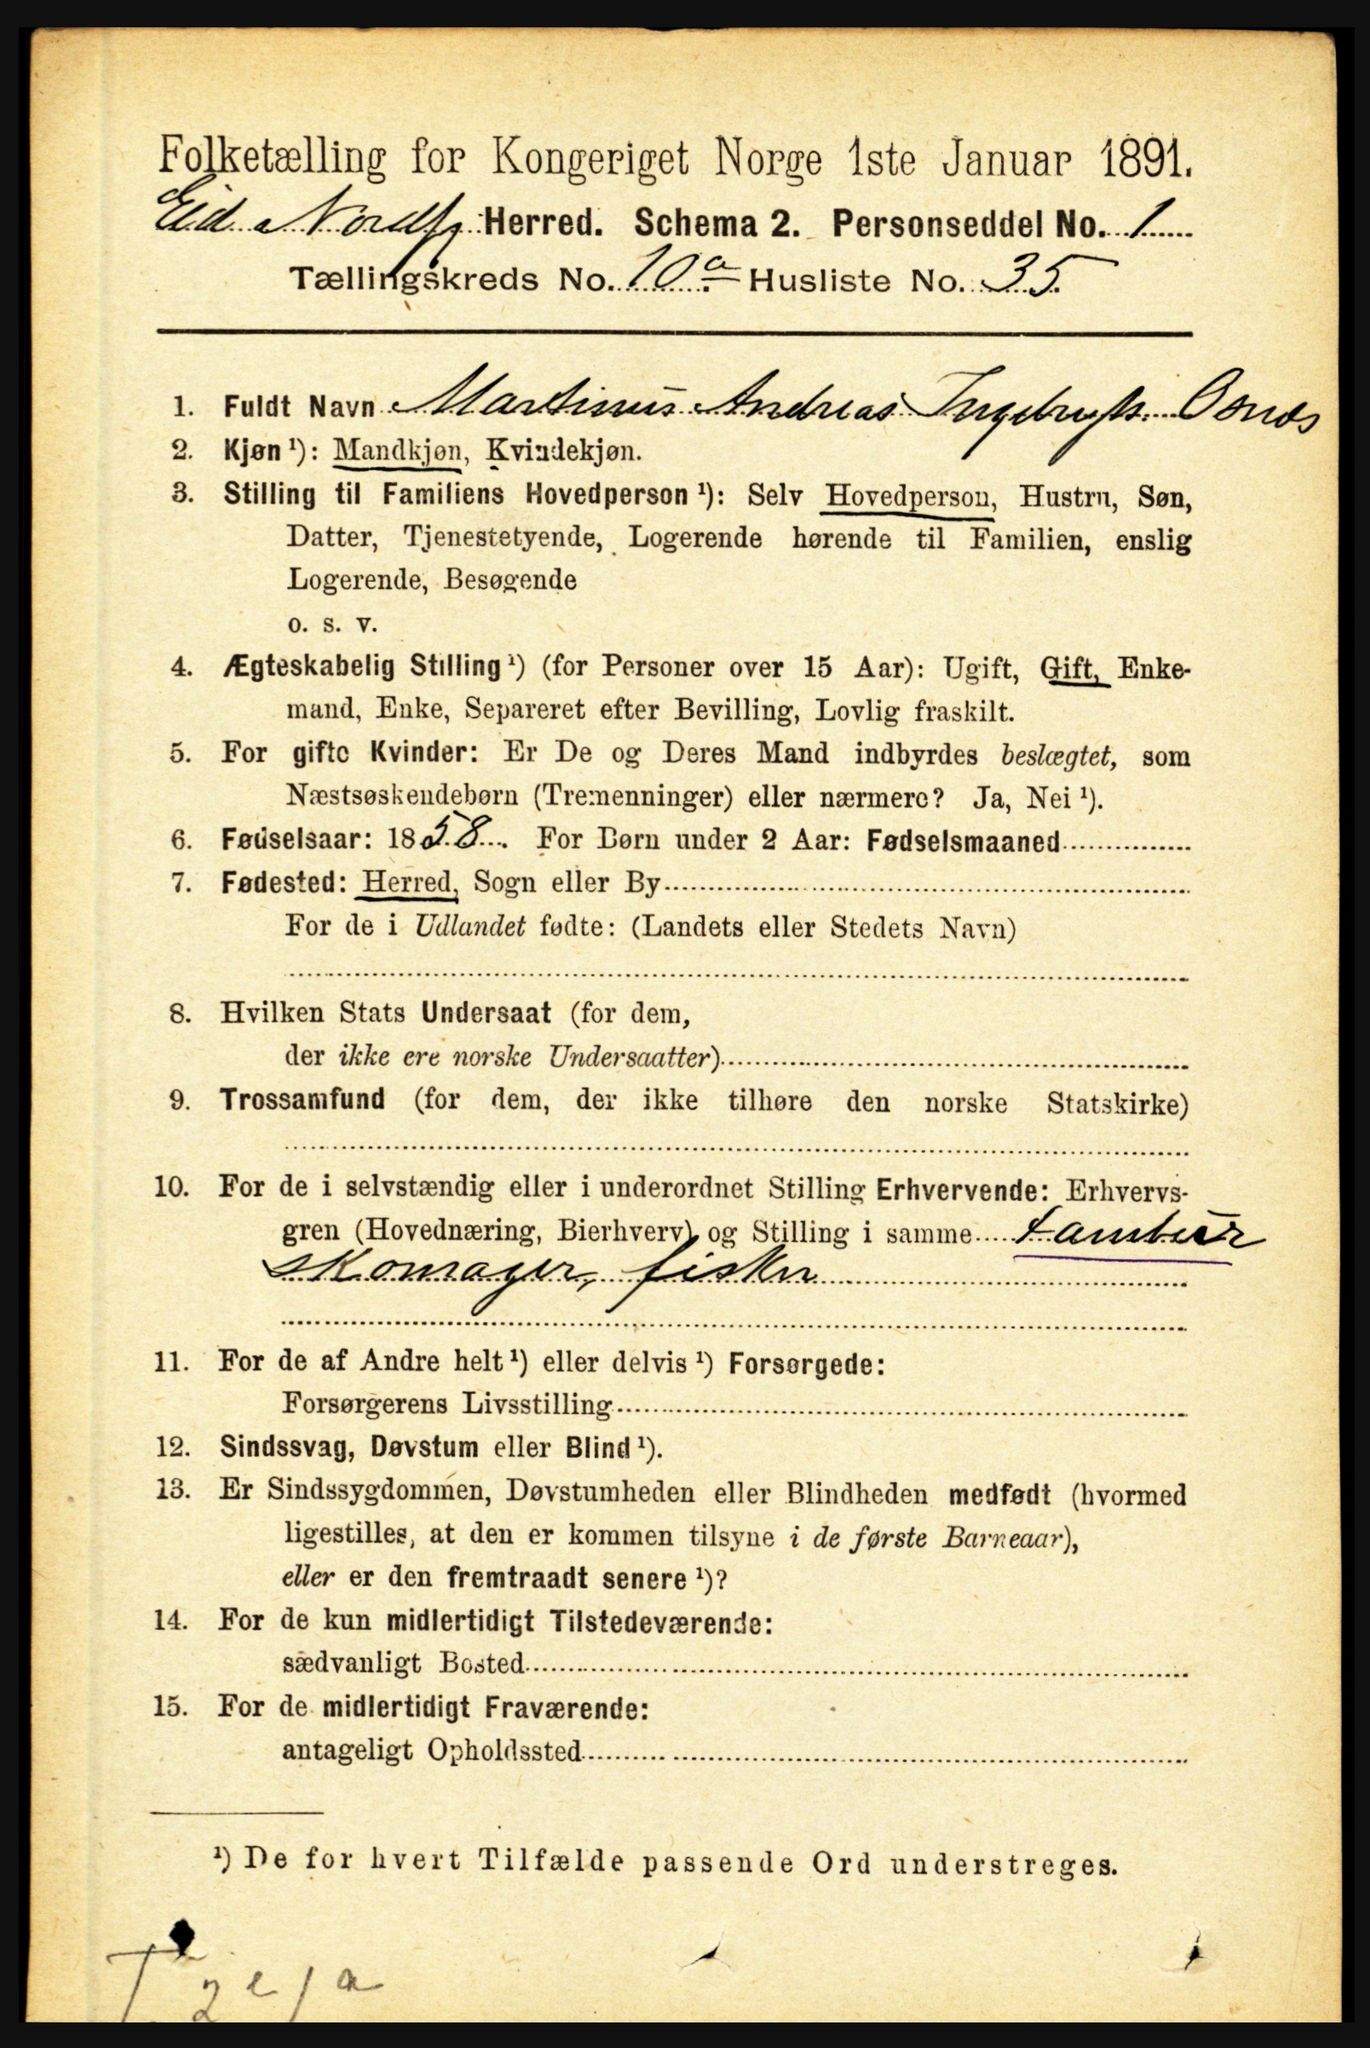 Folketælling for Kongeriget Norge 1ste Januar 1891.
Eid Nordfj Herred. Schema 2. Personseddel No. 1
Tællingskreds No. 10a Husliste No. 35
1. Fuldt Navn Martinus Andreas Ingebrigts. Osnes
2. Kjøn ¹): Mandkjøn, Kvindekjøn.
3. Stilling til Familiens Hovedperson ¹): Selv Hovedperson, Hustru, Søn,
Datter, Tjenestetyende, Logerende hørende til Familien, enslig
Logerende, Besøgende
o. s. v.
4. Ægteskabelig Stilling ¹) (for Personer over 15 Aar): Ugift, Gift, Enke-
mand, Enke, Separeret efter Bevilling, Lovlig fraskilt.
5. For gifte Kvinder: Er De og Deres Mand indbyrdes beslægtet, som
Næstsøskendebørn (Tremenninger) eller nærmere? Ja, Nei ¹).
6. Fødselsaar: 1858. For Børn under 2 Aar: Fødselsmaaned
7. Fødested: Herred, Sogn eller By
For de i Udlandet fødte: (Landets eller Stedets Navn)
8. Hvilken Stats Undersaat (for dem,
der ikke ere norske Undersaatter)
9. Trossamfund (for dem, der ikke tilhøre den norske Statskirke)
10. For de i selvstændig eller i underordnet Stilling Erhvervende: Erhvervs-
gren (Hovednæring, Bierhverv) og Stilling i samme tambur
skomager, fisker
11. For de af Andre helt ¹) eller delvis ¹) Forsørgede:
Forsørgerens Livsstilling
12. Sindssvag, Døvstum eller Blind ¹).
13. Er Sindssygdommen, Døvstumheden eller Blindheden medfødt (hvormed
ligestilles, at den er kommen tilsyne i de første Barneaar),
eller er den fremtraadt senere ¹)?
14. For de kun midlertidigt Tilstedeværende:
sædvanligt Bosted
15. For de midlertidigt Fraværende:
antageligt Opholdssted
¹) De for hvert Tilfælde passende Ord understreges.